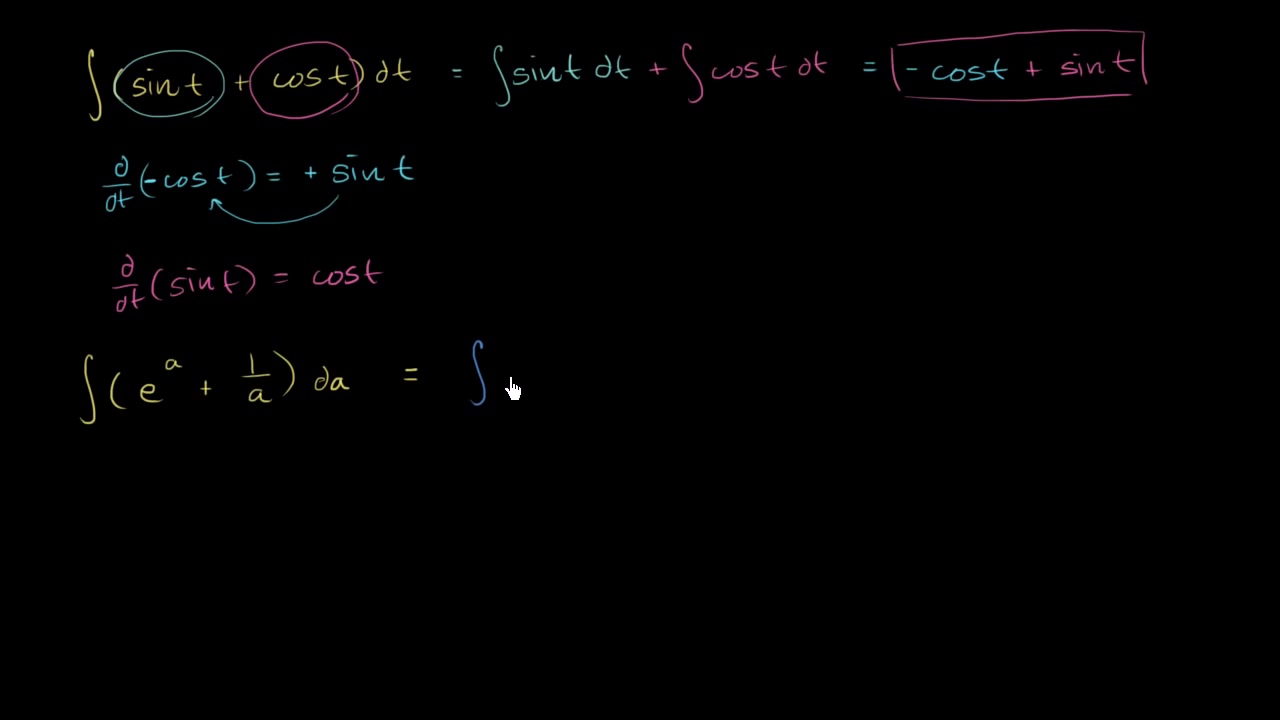 ∫(sin t + cos t) dt = ∫sin t dt + ∫cos t dt = - cos t + sin t
d/dt(-cos t) = + sin t
d/dt(sin t) = cos t
∫(e^a + 1/a) da = ∫